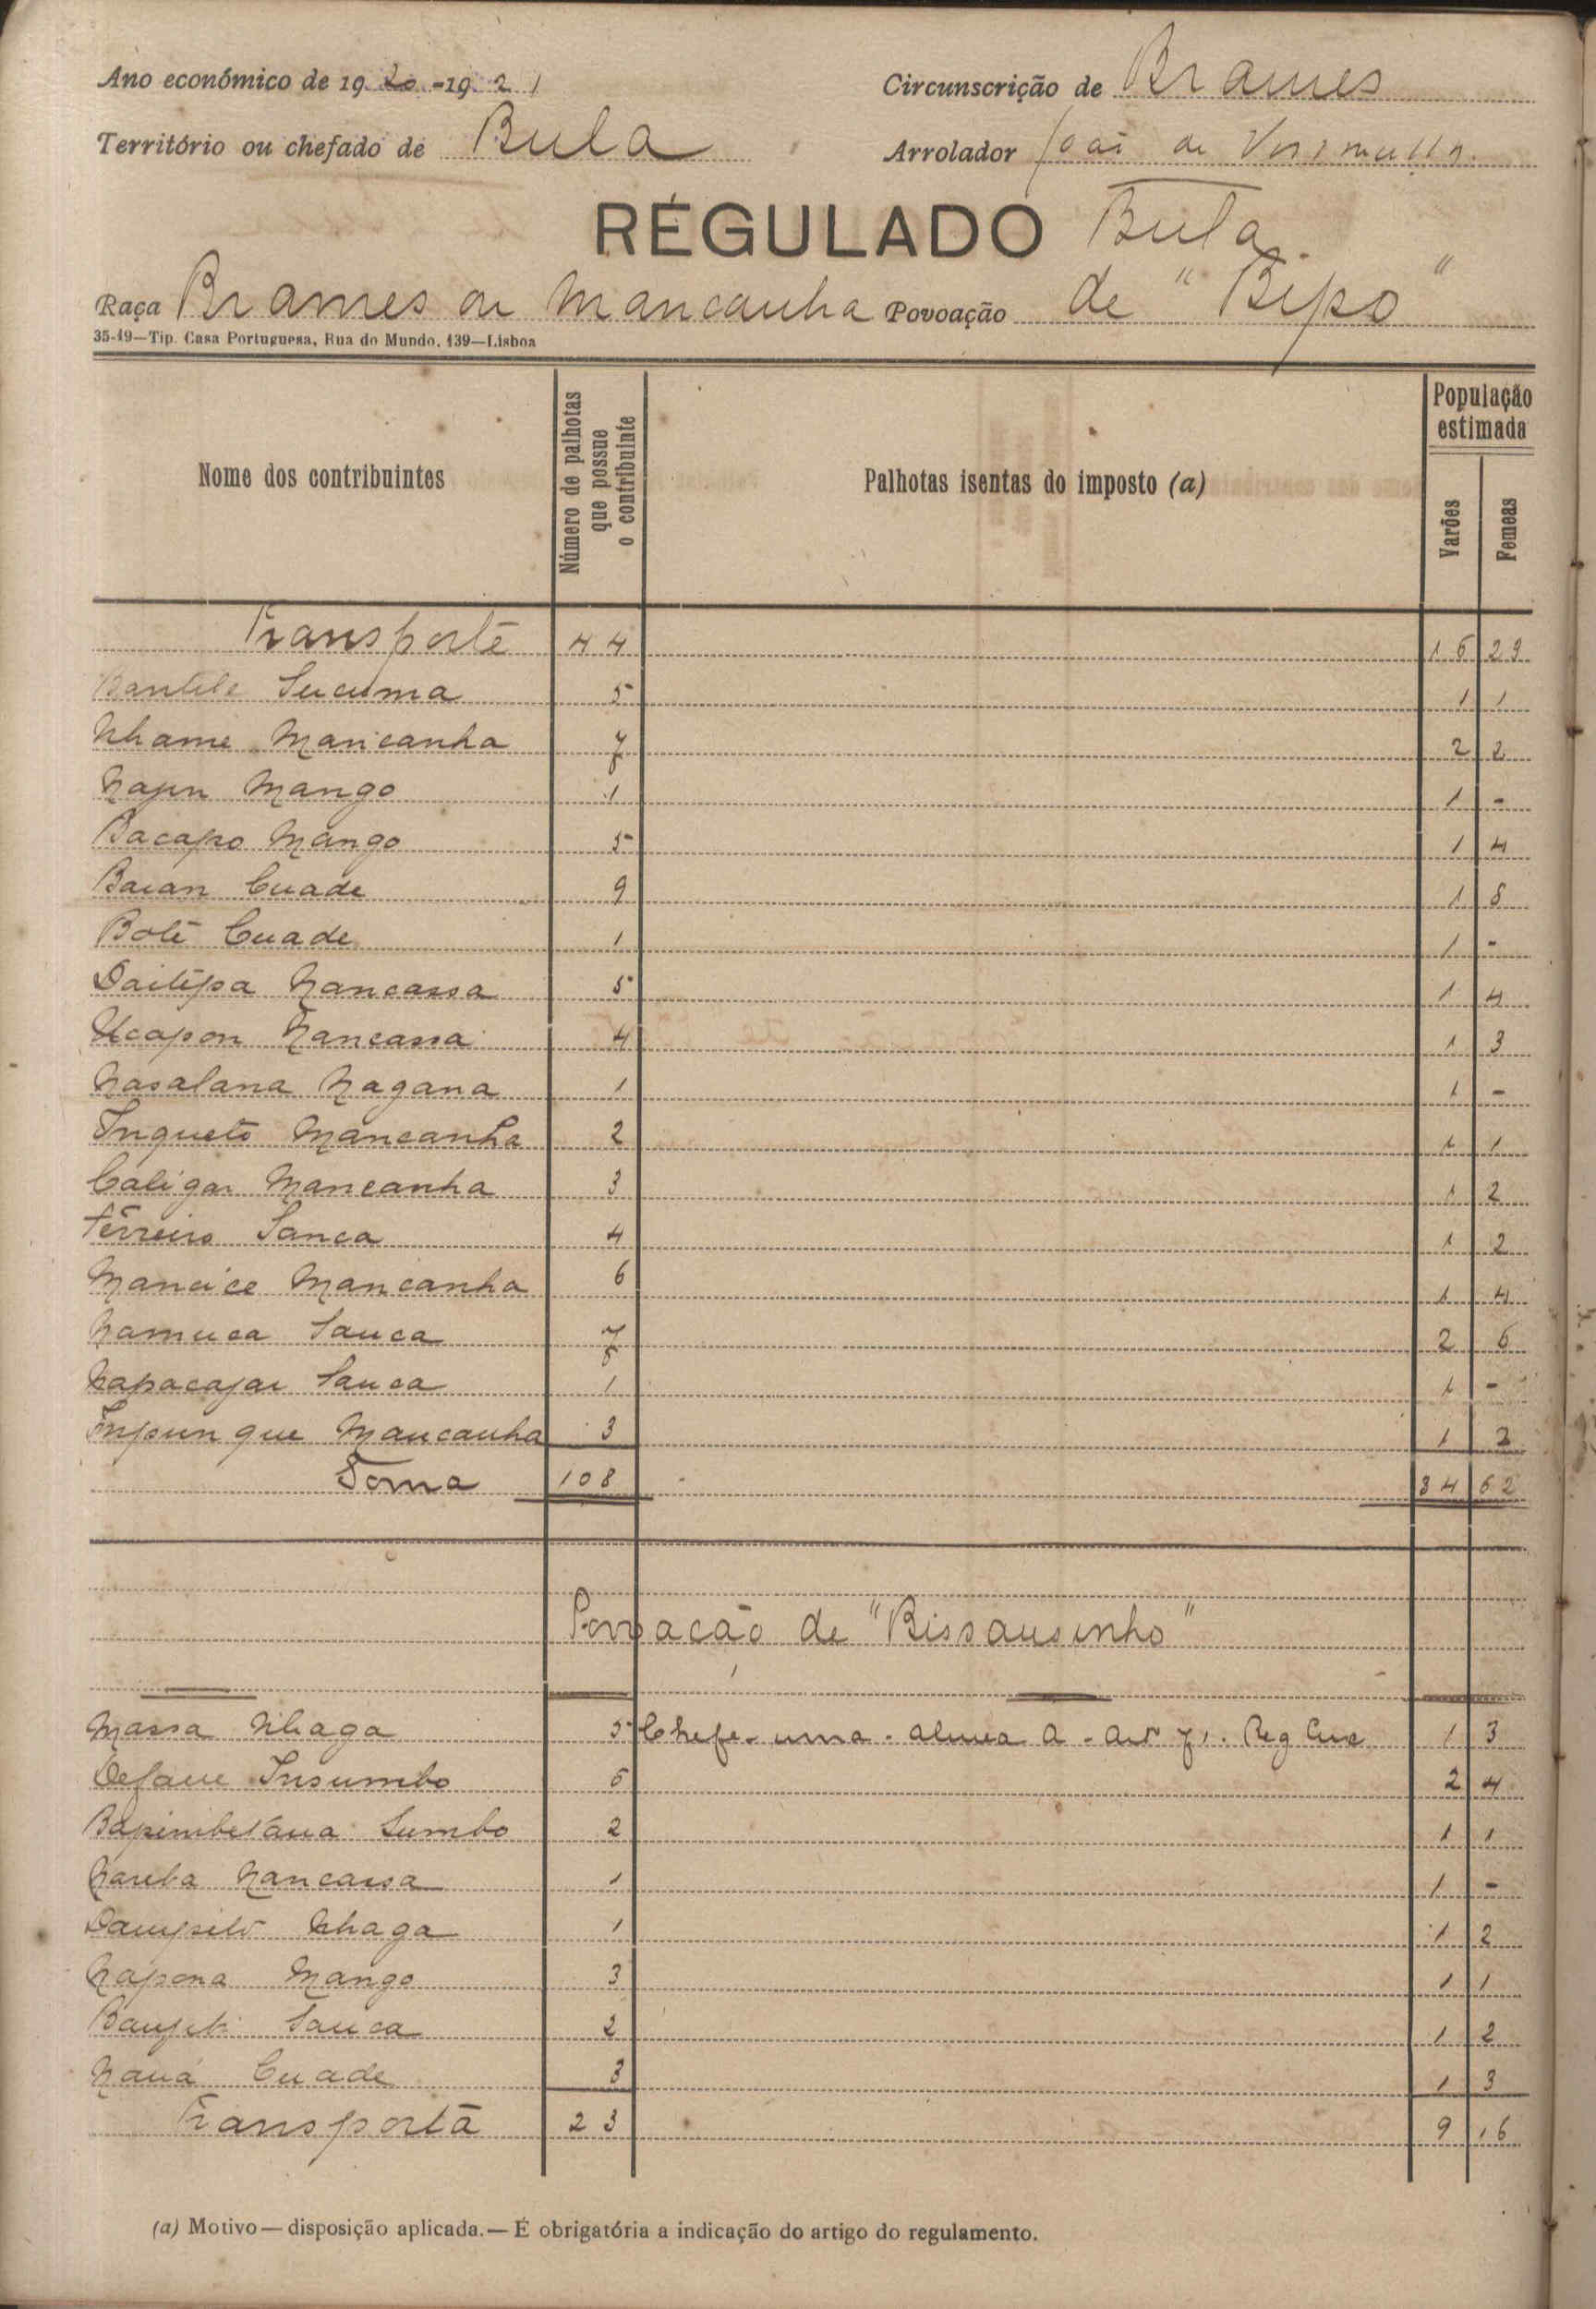 Ano económico de 1920-1921 Circunscrição de Brames
Território ou chefado de Bula Arrolador João de
RÉGULADO Bula
Raça Brames ou Mancanha Povoação de "Bipo"
35-19—Tip. Casa Portuguesa, Rua do Mundo, 139—Lisboa
Nome dos contribuintes Número de palhotas que possue o contribuinte Palhotas isentas do imposto (a) População estimada Varões Femeas
Transporte 44 16 29
Bantile Sucuma 5 1 1
Nhame Mancanha 7 2 2
Najin Mango 1 1 -
Bacapo Mango 5 1 4
Baian Cuade 9 1 8
Boté Cuade 1 1 -
Dailipa Nancassa 5 1 4
Ucapon Nancassa 4 1 3
Nasalana Nagana 1 1 -
Inqueto Mancanha 2 1 1
Caligar Mancanha 3 1 2
Ferreiro Sanca 4 1 2
Mancice Mancanha 6 1 4
Namuca Sanca 7 2 6
Napacajar Sanca 1 1 -
Inpunque Mancanha 3 1 2
Soma 108 34 62
Povoacão de "Bissausinho"
Massa Nhaga 5 Chefe uma - alinea A - artº 7º. Reg 1 3
Defane Insumbo 6 2 4
Sumbo 2 1 1
Nareba Nancassa 1 1 -
Nhaga 1 1 2
Napona Mango 3 1 1
Sanca 2 1 2
Nauá Cuade 3 1 3
Transporta 23 9 16
(a) Motivo—disposição aplicada.—É obrigatória a indicação do artigo do regulamento.